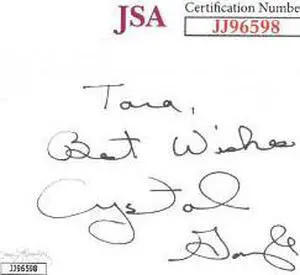 JSA
Certification Number
JJ96598
Tara,
Best Wishes
Crystal
Gayle
JJ96598